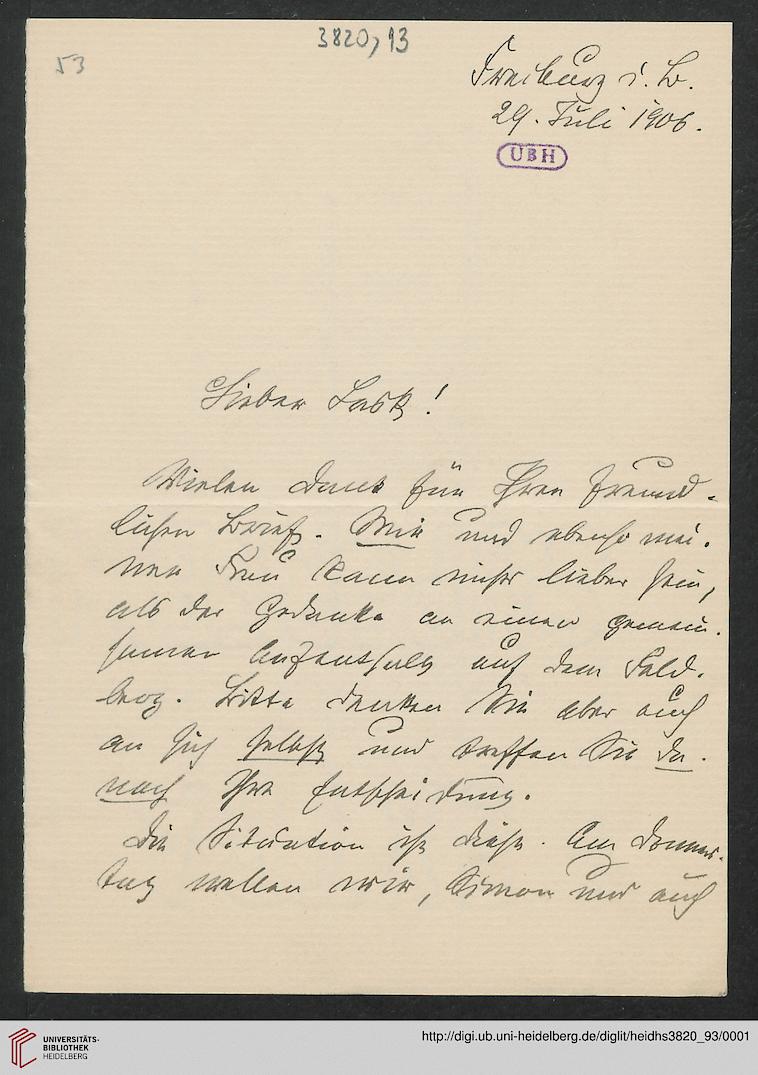 3820,93
53
Freiburg i. B.
29. Juli 1906.
UBH
Lieber Lask!
Vielen Dank für Ihren freund-
lichen Brief. Mir und ebenso mei-
ner Frau kann nichts lieber sein,
als der Gedanke an einen gemein-
samen Aufenthalt auf dem Feld-
berg. Bitte denken Sie aber auch
an sich selbst und treffen Sie da-
nach Ihre Entscheidung.
Die Situation ist diese. Am Donners-
tag wollen wir, Simon und auch
UNIVERSITÄTS-
BIBLIOTHEK
HEIDELBERG
http://digi.ub.uni-heidelberg.de/diglit/heidhs3820_93/0001